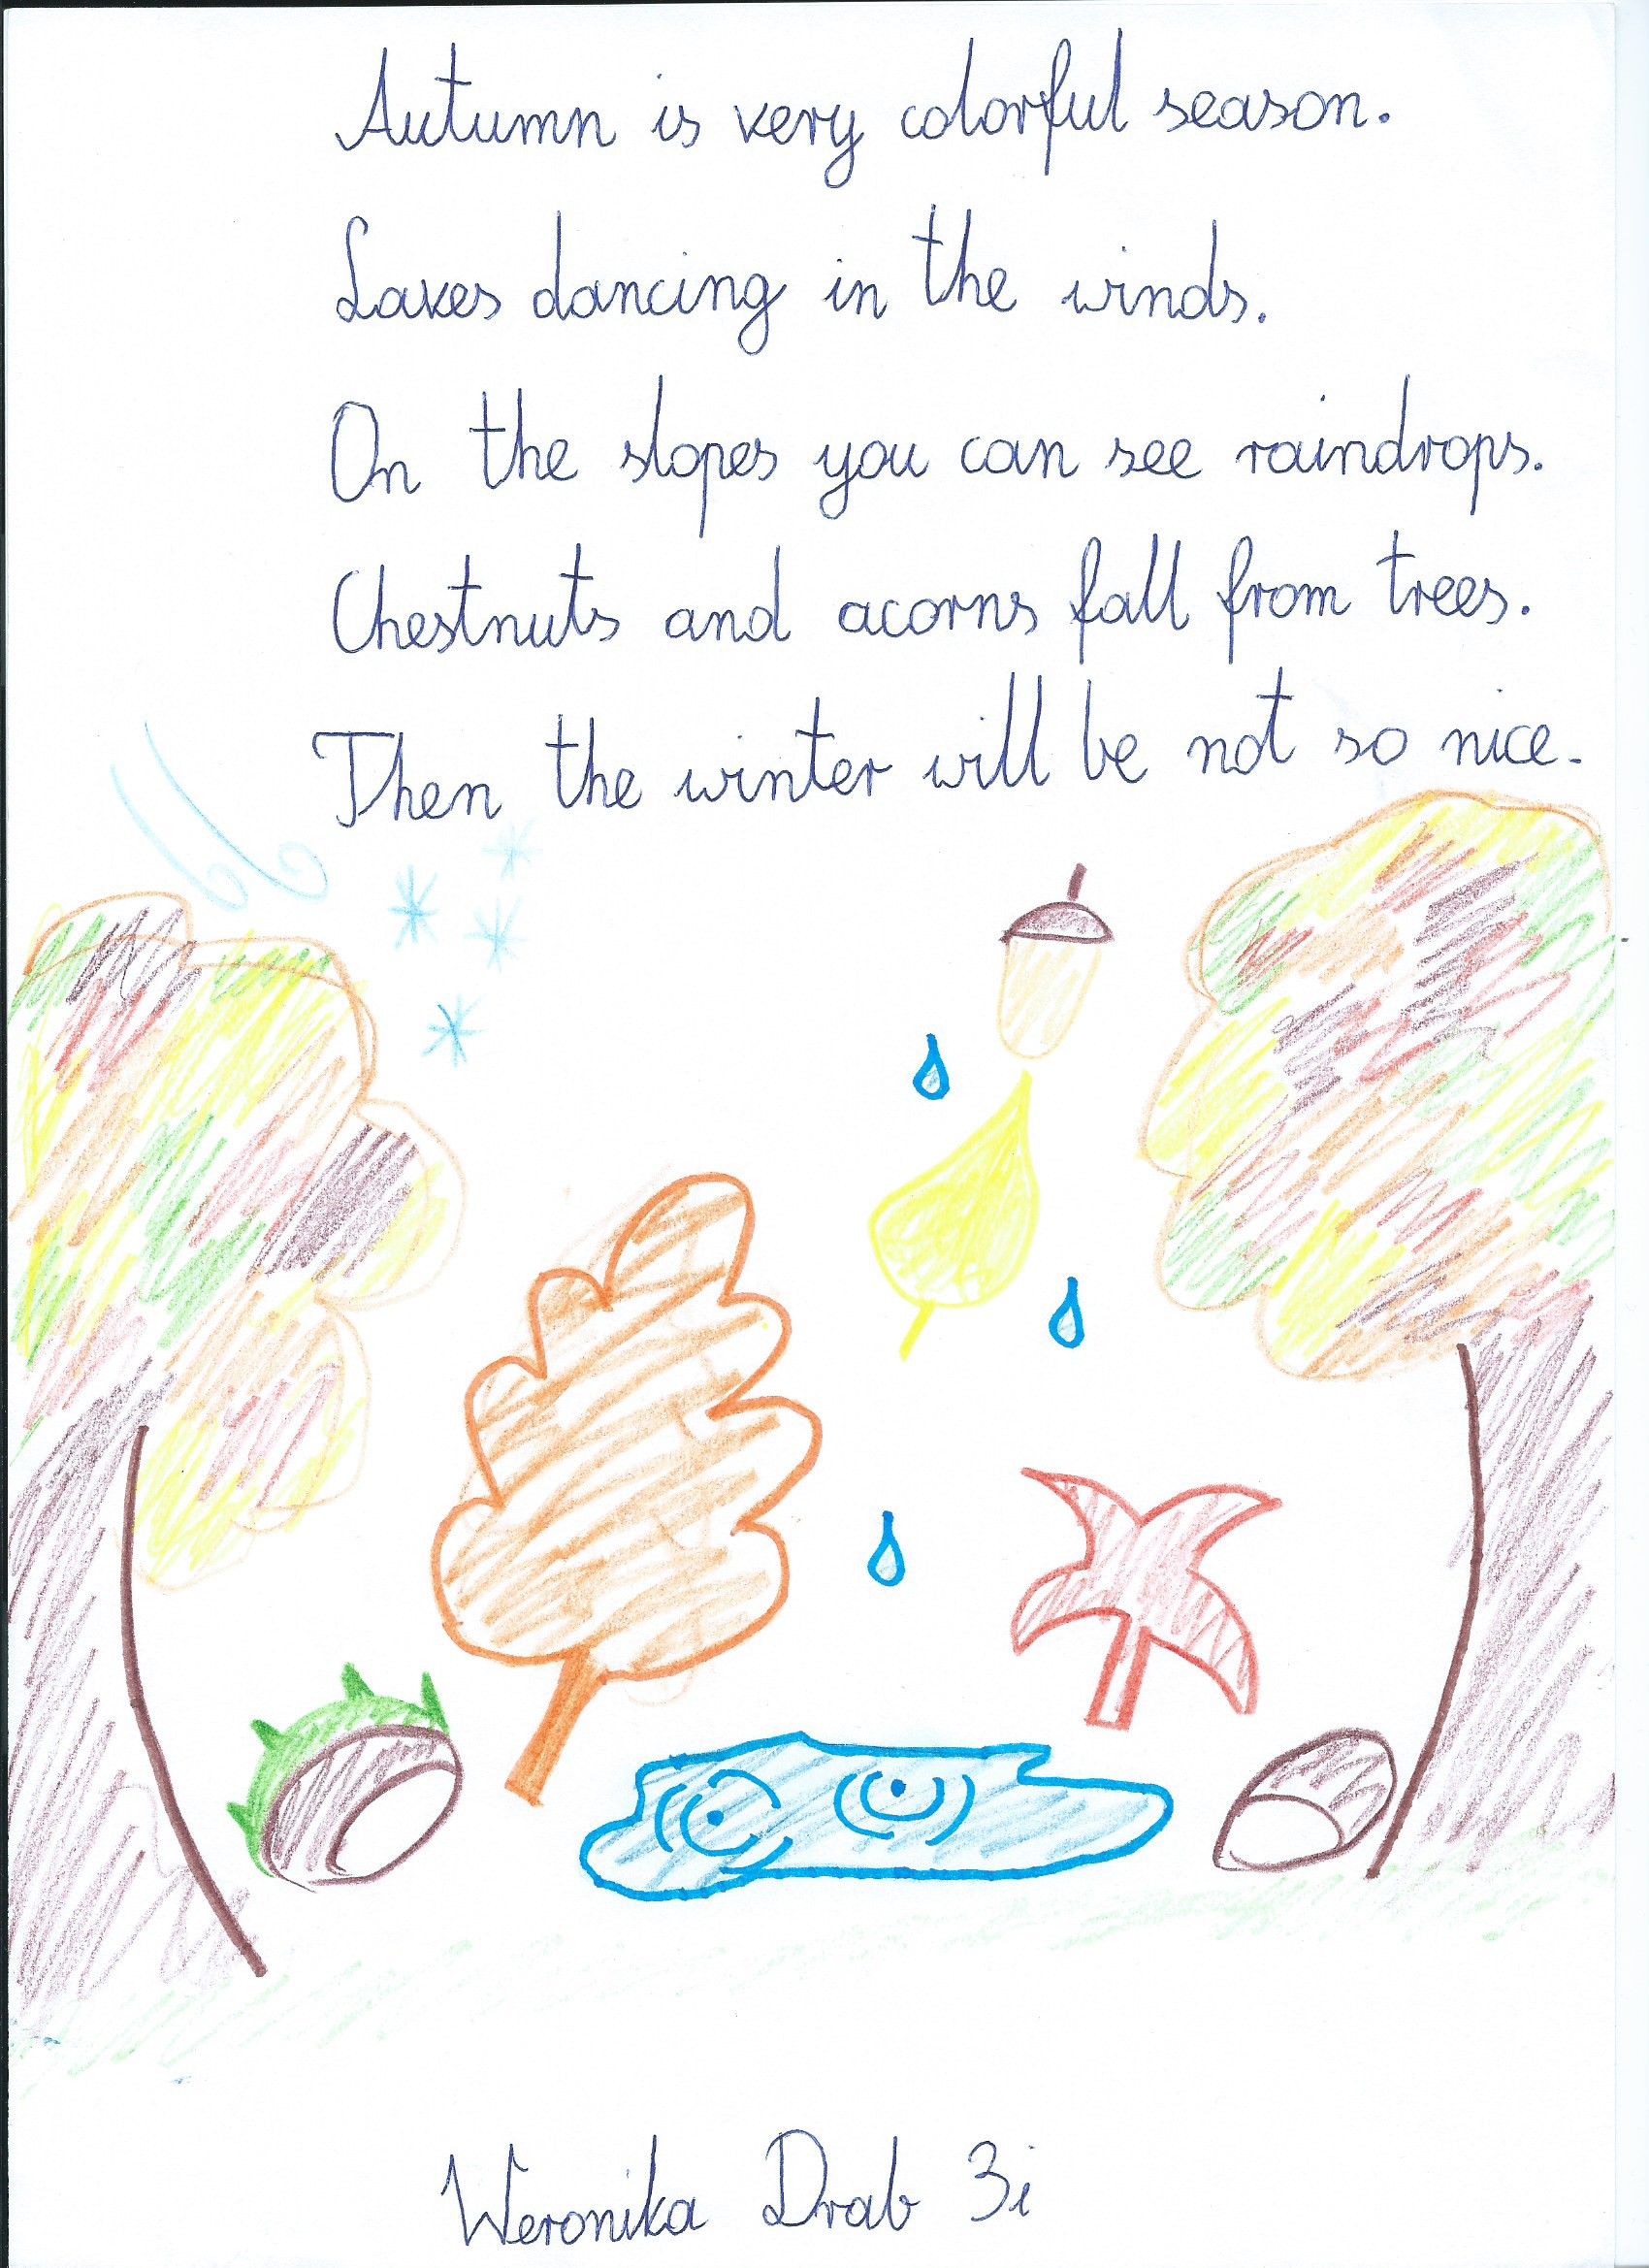 Autumn is very colorful season.
Laves dancing in the winds.
On the slopes you can see raindrops.
Chestnuts and acorns fall from trees.
Then the winter will be not so nice.
Weronika Drab 3i